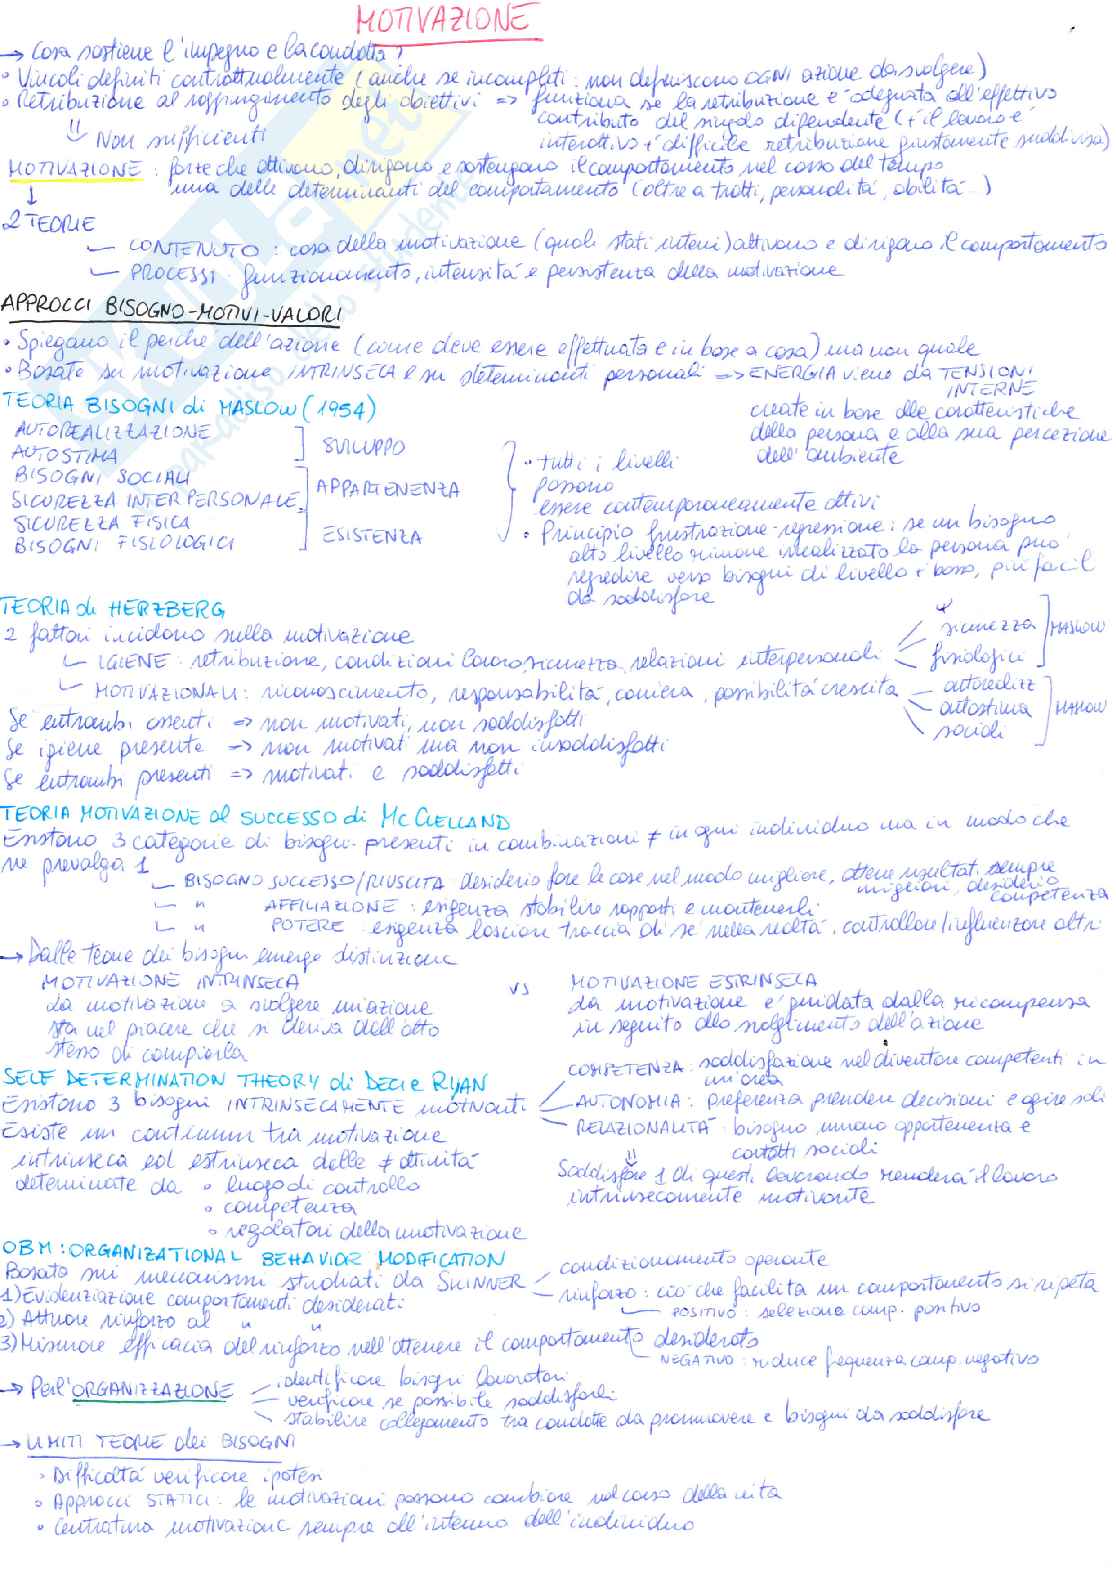 MOTIVAZIONE
→ Cosa sostiene l'impegno e la condotta?
• Vincoli definiti contrattualmente (anche se incompleti: non definiscono OGNI azione da svolgere)
• Retribuzione al raggiungimento degli obiettivi => funziona se la retribuzione è adeguata all'effettivo
contributo del singolo dipendente (+ il lavoro è
interattivo + difficile retribuzione giustamente suddivisa)
Non sufficienti
MOTIVAZIONE: forze che attivano, dirigono e sostengono il comportamento nel corso del tempo
una delle determinanti del comportamento (oltre a tratti, personalità, abilità...)
↓
2 TEORIE
CONTENUTO: cosa della motivazione (quali stati interni) attivano e dirigono il comportamento
PROCESSI: funzionamento, intensità e persistenza della motivazione
APPROCCI BISOGNO-MOTIVI-VALORI
• Spiegano il perché dell'azione (come deve essere effettuata e in base a cosa) ma non quale
• Basate su motivazione INTRINSECA e su determinanti personali => ENERGIA viene da TENSIONI
INTERNE
create in base alle caratteristiche
della persona e alla sua percezione
dell'ambiente
TEORIA BISOGNI di MASLOW (1954)
AUTOREALIZZAZIONE
AUTOSTIMA
SVILUPPO
BISOGNI SOCIALI
SICUREZZA INTERPERSONALE
APPARTENENZA
SICUREZZA FISICA
BISOGNI FISIOLOGICI
ESISTENZA
• tutti i livelli
possono
essere contemporaneamente attivi
• Principio frustrazione-regressione: se un bisogno
alto livello rimane irrealizzato la persona può
regredire verso bisogni di livello + basso, più facili
da soddisfare
TEORIA di HERZBERG
2 fattori incidono sulla motivazione
IGIENE: retribuzione, condizioni lavoro, sicurezza, relazioni interpersonali
sicurezza
fisiologici
MASLOW
MOTIVAZIONALI: riconoscimento, responsabilità, carriera, possibilità crescita
autorealizz
autostima
sociali
MASLOW
Se entrambi assenti => non motivati, non soddisfatti
Se igiene presente => non motivati ma non insoddisfatti
Se entrambi presenti => motivati e soddisfatti
TEORIA MOTIVAZIONE al SUCCESSO di McCLELLAND
Esistono 3 categorie di bisogni presenti in combinazioni ≠ in ogni individuo ma in modo che
ne prevalga 1
BISOGNO SUCCESSO/RIUSCITA desiderio fare le cose nel modo migliore, ottenere risultati sempre
migliori, desiderio
competenza
" AFFILIAZIONE: esigenza stabilire rapporti e mantenerli
" POTERE esigenza lasciare traccia di sé nella realtà, controllare/influenzare altri
→ Dalle teorie dei bisogni emerge distinzione
MOTIVAZIONE INTRINSECA
la motivazione a svolgere un'azione
sta nel piacere che si deriva dell'atto
stesso di compierla
vs
MOTIVAZIONE ESTRINSECA
la motivazione è guidata dalla ricompensa
in seguito allo svolgimento dell'azione
SELF DETERMINATION THEORY di DECI e RYAN
Esistono 3 bisogni INTRINSECAMENTE motivanti
COMPETENZA: soddisfazione nel diventare competenti in
un'area
AUTONOMIA: preferenza prendere decisioni e agire soli
RELAZIONALITÀ bisogno umano appartenenza e
contatti sociali
Soddisfare 1 di questi lavorando renderà il lavoro
intrinsecamente motivante
Esiste un continuum tra motivazione
intrinseca ed estrinseca delle ≠ attività
determinate da • luogo di controllo
• competenza
• regolatori della motivazione
OBM: ORGANIZATIONAL BEHAVIOR MODIFICATION
Basato sui meccanismi studiati da SKINNER
condizionamento operante
rinforzo: ciò che facilita un comportamento si ripeta
POSITIVO: seleziona comp. positivo
NEGATIVO: riduce frequenza comp. negativo
1) Evidenziazione comportamenti desiderati
2) Attuare rinforzo al " "
3) Misurare efficacia del rinforzo nell'ottenere il comportamento desiderato
→ Per l'ORGANIZZAZIONE
identificare bisogni lavoratori
verificare se possibile soddisfarli
stabilire collegamento tra condotte da promuovere e bisogni da soddisfare
→ LIMITI TEORIE dei BISOGNI
• Difficoltà verificare ipotesi
• Approcci STATICI: le motivazioni possono cambiare nel corso della vita
• Centratura motivazione sempre all'interno dell'individuo